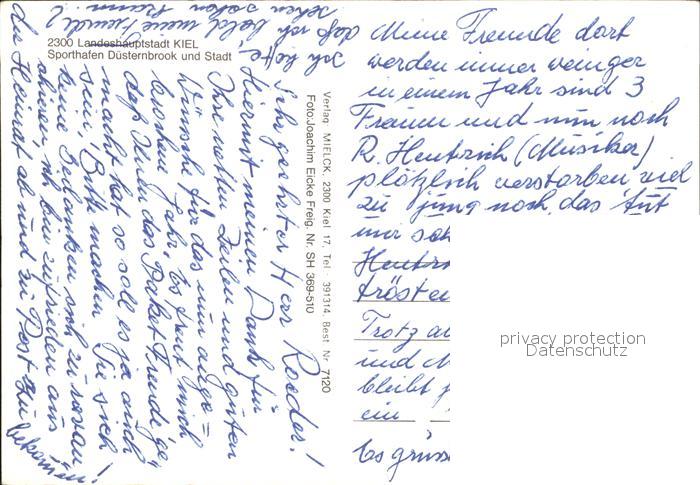 2300 Landeshauptstadt KIEL
Sporthafen Düsternbrook und Stadt
Sehr geehrter Herr Roeder!
Hiermit meinen Dank für
Ihre netten Zeilen und guten
Wünsche für das nun ange=
brochene Jahr. Es freut mich
daß Ihnen das Paket Freude ge=
macht hat so soll es ja auch
sein. Bitte machen Sie sich
keine Gedanken sich zu revan
chieren, ich bin zufrieden aus
der Heimat ab und zu Post zu
bekommen!
Ich hoffe
daß ich bald meine Freunde
sehen kann.
Verlag MIELCK, 2300 Kiel 17, Tel. 391314, Best. Nr. 7120
Foto: Joachim Eicke Freig. Nr. SH 369-510
Meine Freunde dort
werden immer weniger
in einem Jahr sind 3
Frauen und nun noch
R. Hentrich (Musiker)
plötzlich verstorben viel
zu jung noch, das tut
mir
trösten
Trotz
und
bleibt
ein
Es grüss
privacy protection
Datenschutz